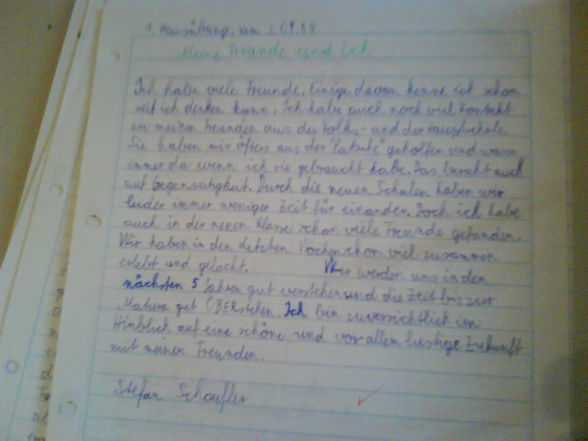 1. Hausübung, am 21.09.04
Meine Freunde und ich
Ich habe viele Freunde. Einige davon kenne ich schon
seit ich denken kann. Ich habe auch noch viel Kontakt
zu meinen Freunden aus der Volks- und der Hauptschule.
Sie haben mir öfters aus der "Patsche" geholfen und waren
immer da wenn ich sie gebraucht habe. Das beruht auch
auf Gegenseitigkeit. Durch die neuen Schulen haben wir
leider immer weniger Zeit für einander. Doch ich habe
auch in der neuen Klasse schon viele Freunde gefunden.
Wir haben in den letzten Wochen schon viel zusammen
erlebt und gelacht. Wir werden uns in den
nächsten 5 Jahren gut verstehen und die Zeit bis zur
Matura gut ÜBERstehen. Ich bin zuversichtlich im
Hinblick auf eine schöne und vor allem lustige Zukunft
mit meinen Freunden.
Stefan Schaufler